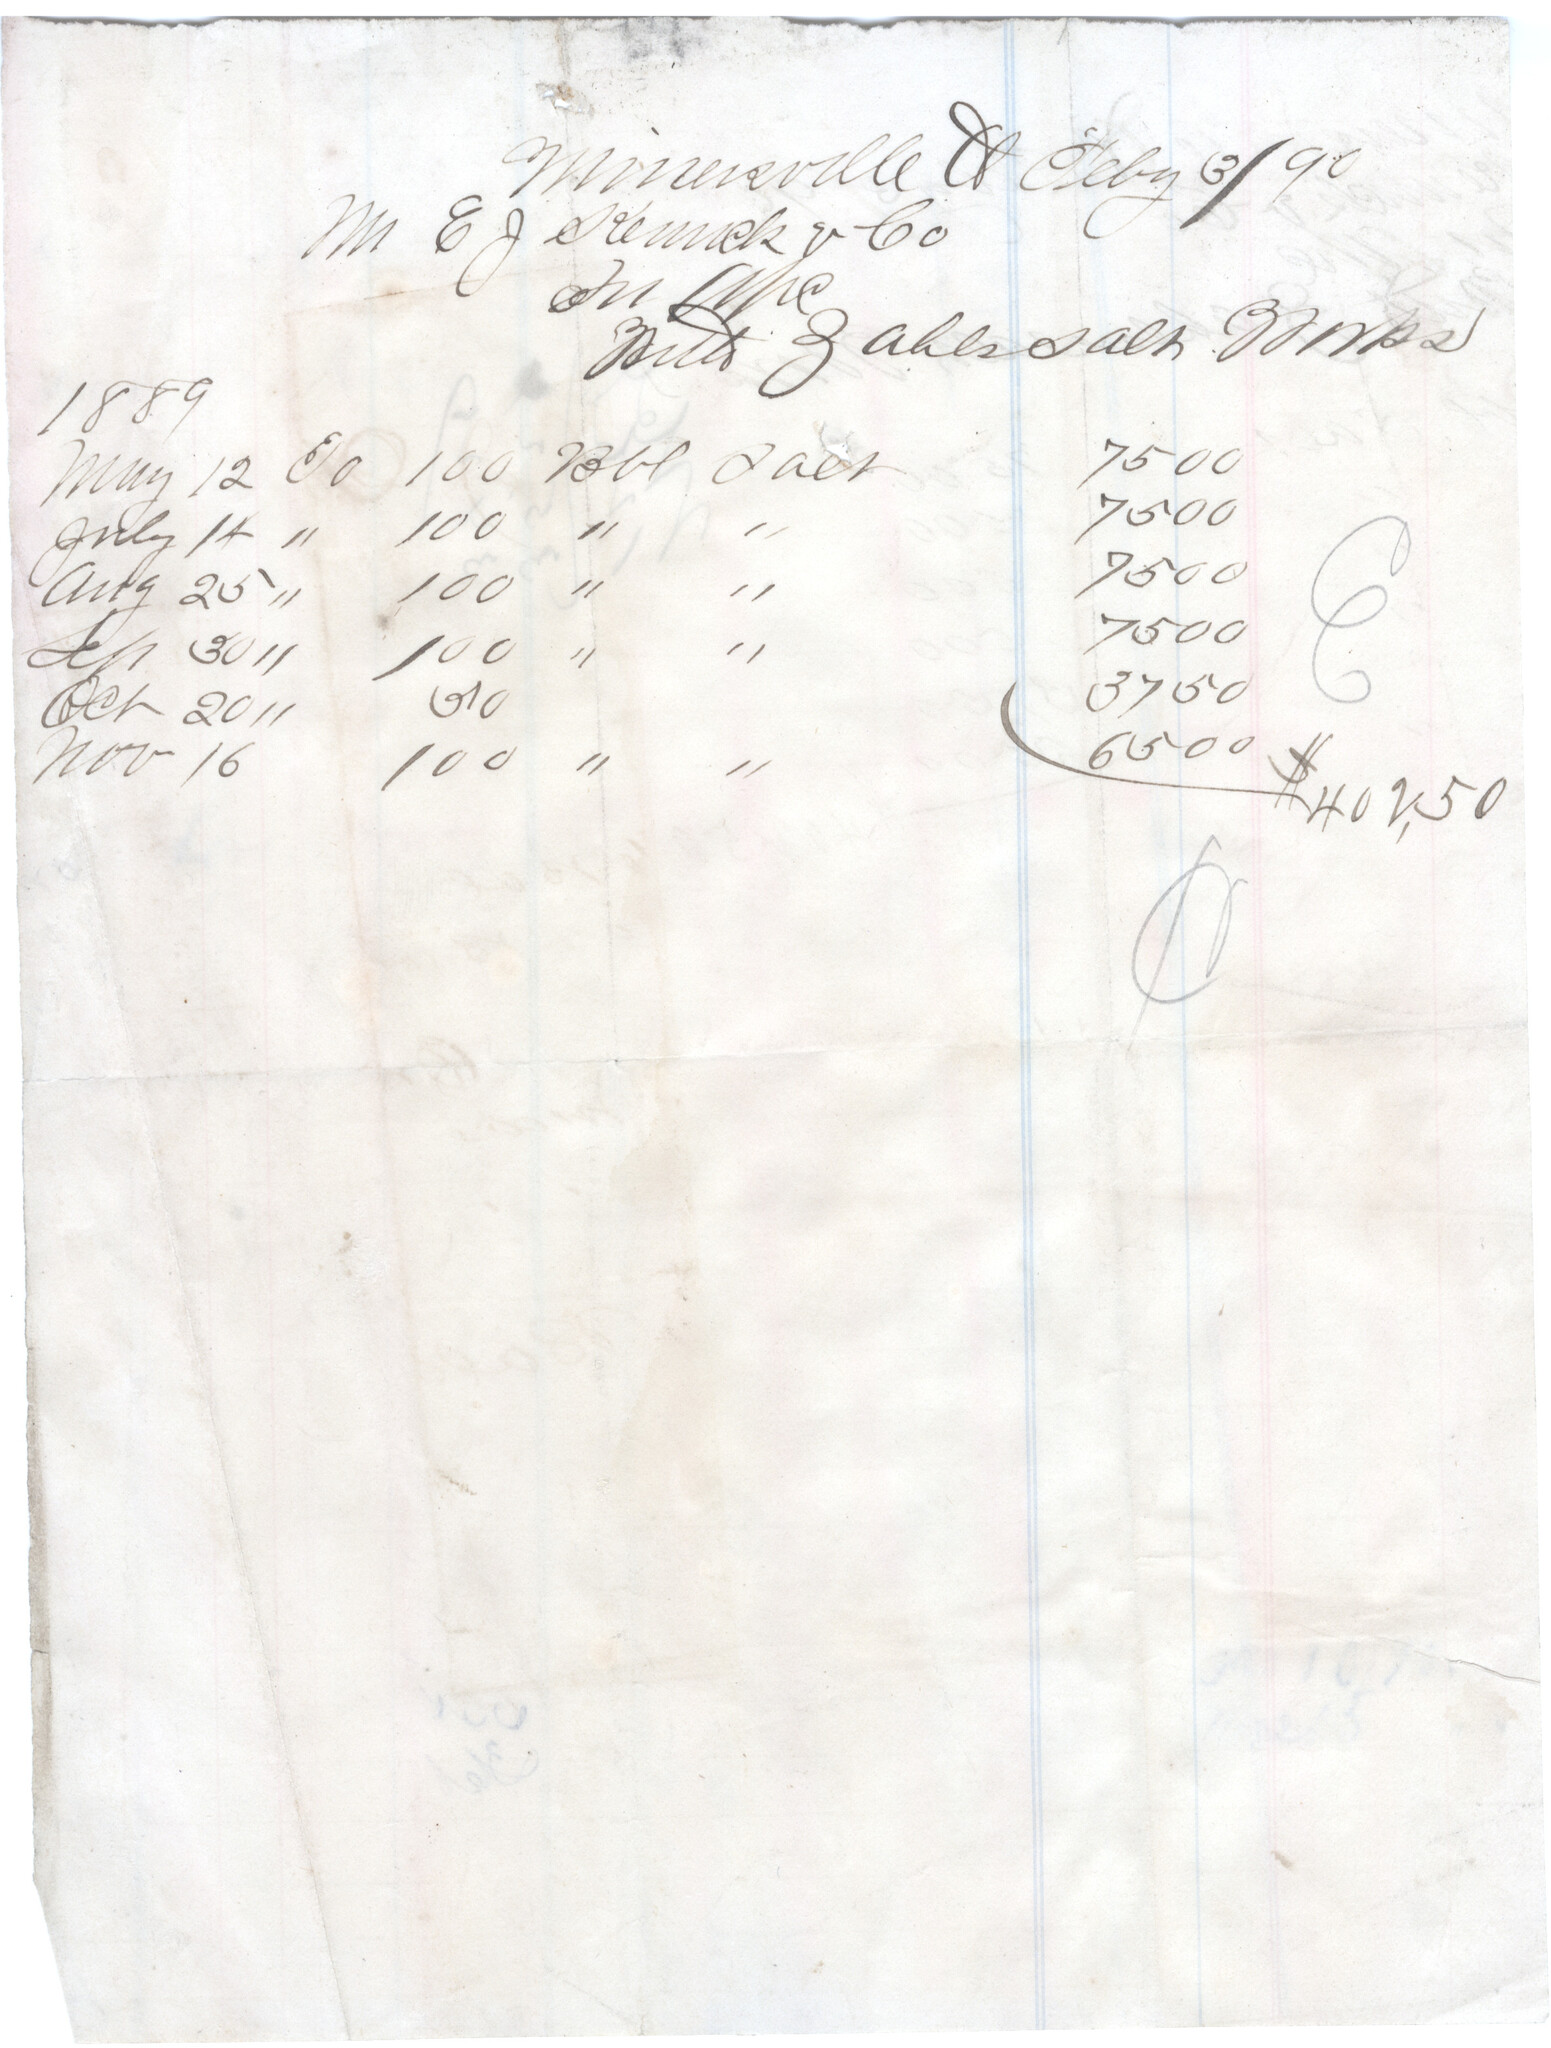 Minersville O Feby 3/90
Mr E J Kenrick & Co
In a/c
With Zahls Salt Works
1889
May 12 To 100 Bbl Salt 7500
July 14 " 100 " " 7500
Aug 25 " 100 " " 7500
Sep 30 " 100 " " 7500
Oct 20 " 50 3750
Nov 16 100 " " 6500
$402,50